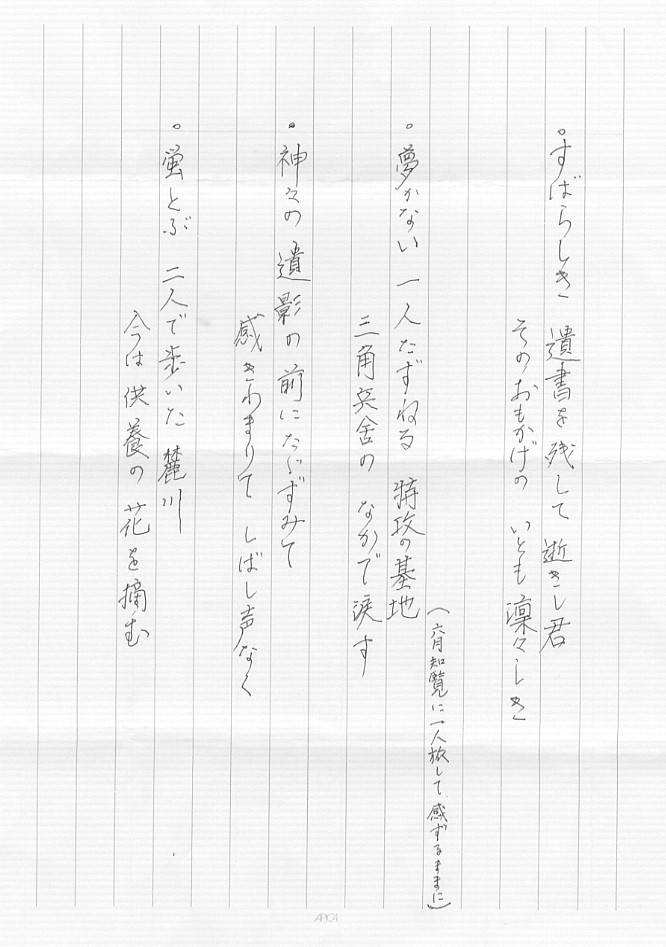 。すばらしき 遺書を残して 逝きし君
そのおもかげの いとも凛々しき
(六月知覧に一人旅して 感ずるままに)
。夢かない 一人たずねる 特攻の基地
三角兵舎の なかで涙す
。神々の 遺影の前にたゝずみて
感きわまりて しばし声なく
。蛍とぶ 二人で歩いた 麓川
今は供養の 花を摘む
APICA